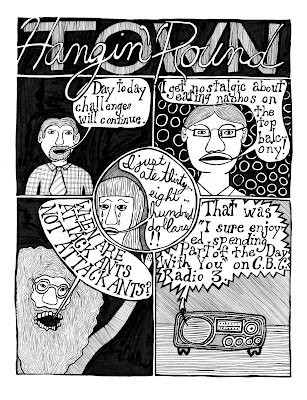 TOWN
Hangin' Round
Day to day
challenges
will continue.
I get nostalgic about
eating nachos on
the
top
balc-
ony!
I just
ate thirty
eight
hundred
dollars!!
WHEN ARE
ATTACK ANTS
NOT ATTACK ANTS?
That was
"I sure enjoy
ed spending
Part of the Day
With You" on C.B.C.
Radio 3.